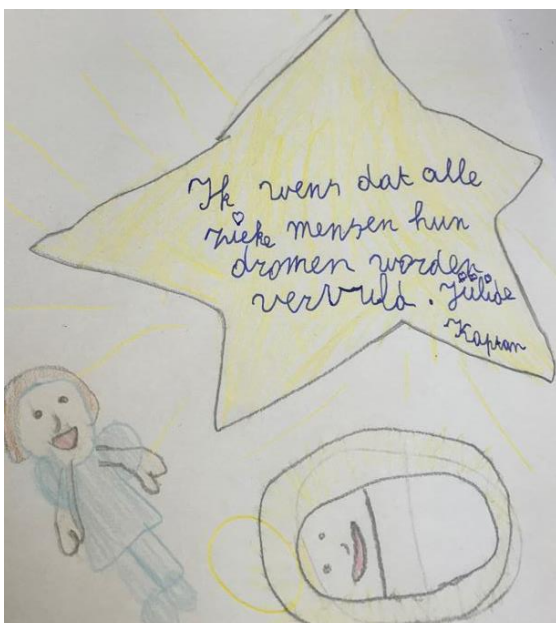 Ik wens dat alle
zieke mensen hun
dromen worden
vervuld. Jülide
Kaptan